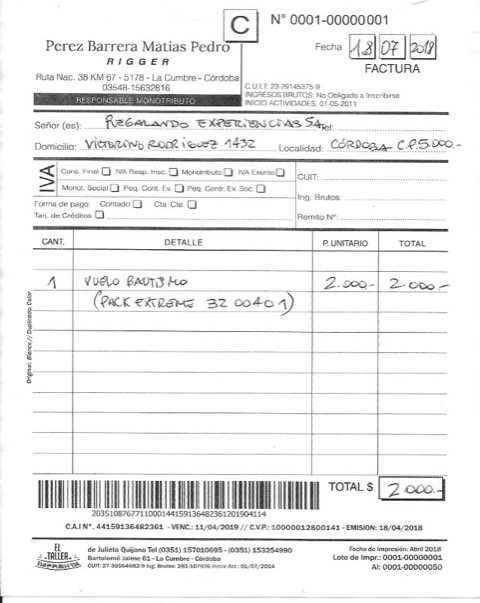 C
N° 0001-00000001
Perez Barrera Matias Pedro
RIGGER
Ruta Nac. 38 KM 67 - 5178 - La Cumbre - Córdoba
03548-15632816
RESPONSABLE MONOTRIBUTO
Fecha 18 07 2018
FACTURA
C.U.I.T: 23-29145375-9
INGRESOS BRUTOS: No Obligado a Inscribirse
INICIO ACTIVIDADES: 01-05-2011
Señor (es): REGALANDO EXPERIENCIAS SA Tel:
Domicilio: VICTORINO RODRIGUEZ 1432 Localidad: CÓRDOBA C.P 5.000.-
IVA
Cons. Final IVA Resp. Insc. Monotributo IVA Exento
Monot. Social Peq. Cont. Ev. Peq. Contr. Ev. Soc.
Forma de pago: Contado Cta. Cte.
Tarj. de Créditos
CUIT:
Ing. Brutos:
Remito N°:
CANT. DETALLE P. UNITARIO TOTAL
1 VUELO BAUTISMO 2.000.- 2.000.-
(PACK EXTREME 3200401)
Original: Blanco // Duplicado: Color
TOTAL $ 2000.-
2035108767711000144159136482361201904114
C.A.I N°. 44159136482361 - VENC.: 11/04/2019 // C.V.P.: 10000012800141 - EMISION: 18/04/2018
EL TALLER
de Julieta Quijano Tel (0351) 157010695 - (0351) 153254990
Bartolomé Jaime 61 - La Cumbre - Córdoba
CUIT: 27-35564682-9 Ing. Brutos: 281-107976 Inicio Act.: 01/07/2014
Fecha de impresión: Abril 2018
Lote de Impr.: 0001-00000001
Al: 0001-00000050